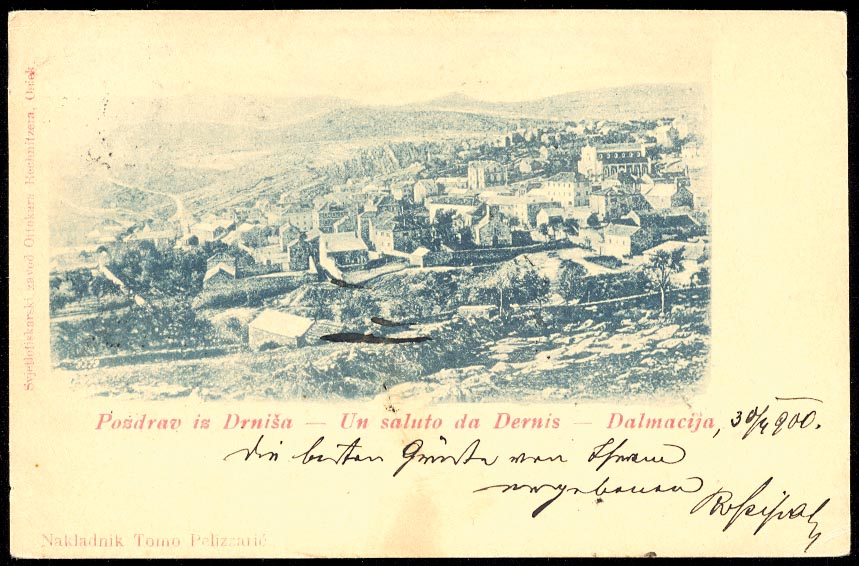 Svjetlotiskarski zavod Ottokara Rechnitzera, Osiek.
Pozdrav iz Drniša — Un saluto da Dernis — Dalmacija,
die besten Grüsse von Ihrem
ergebenen
Nakladnik Tomo Pelizzarić